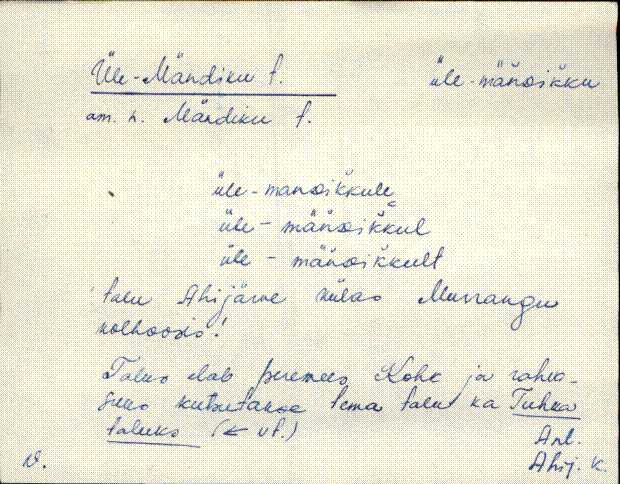 Üle-Mändiku t. üle-mäńᴅiku
am. n. Mändiku t.
üle-mänᴅikkule
üle-mäńᴅikkul
üle-mäńᴅikkult
talu Ahijärve külas Murrangu
kolhoosis!
Talus elab peremees Kohk ja rahva-
suus kutsutakse tema talu ka Tuhka
taluks (← vt.)
Ant.
N. Ahij. k.